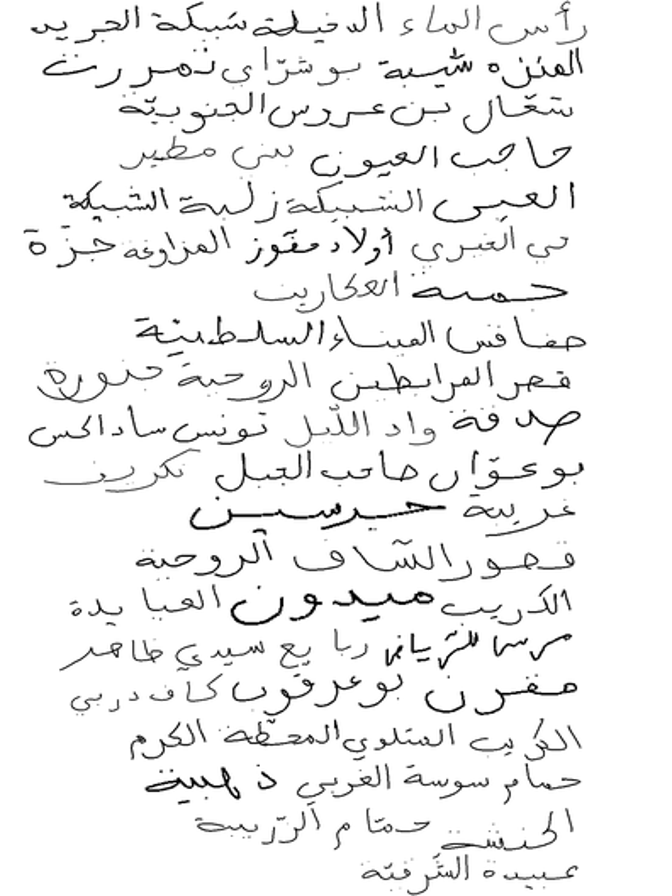 رأس الماء الدخيلة شبيكة الجريد
المنزه شيبة بوشرّاي
شعّال بن عروس الجنوبيّة
حاجب العيون بني مطير
الشبيكة زلبة الشبيكة
في الغبري أولاد مفّوز المزاوغة حزّة
حمية العكاريت
صفاقس الميناء السلطنيّة
قصر المرابطين الروحية
صدقة واد اللّيل تونس ساداكس
بوعوّان صاحب الجبل
غريبة
قصور السّاف الروحية
الكريب ميدون العبايدة
ربايع سيدي ظاهر
مقرن بوعرقوب كاف دربي
الكريب المتلوي المحطّة الكرم
حمام سوسة الغربي ذهبية
الخنشة حمّام الزّريبة
عبيدة الشّرفيّة